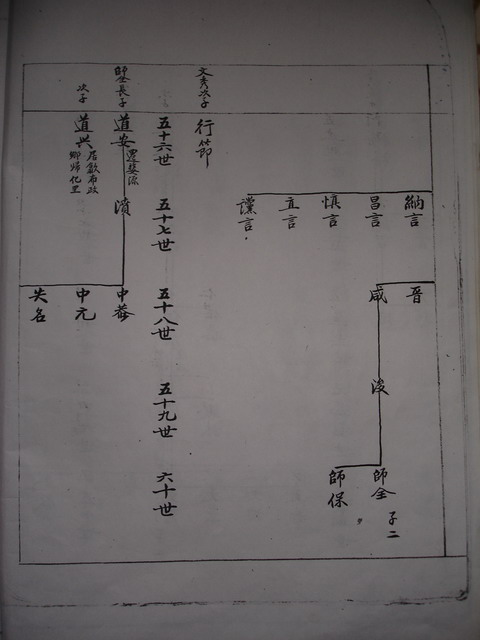 納言
昌言
慎言
直言
讜言
晋
咸
浚
師全
子二
師保
文秀次子
行節
五十六世
五十七世
五十八世
五十九世
六十世
長子
道安
遷婺源
濱
中菴
中元
失名
次子
道興
居歙布政
鄉歸化里